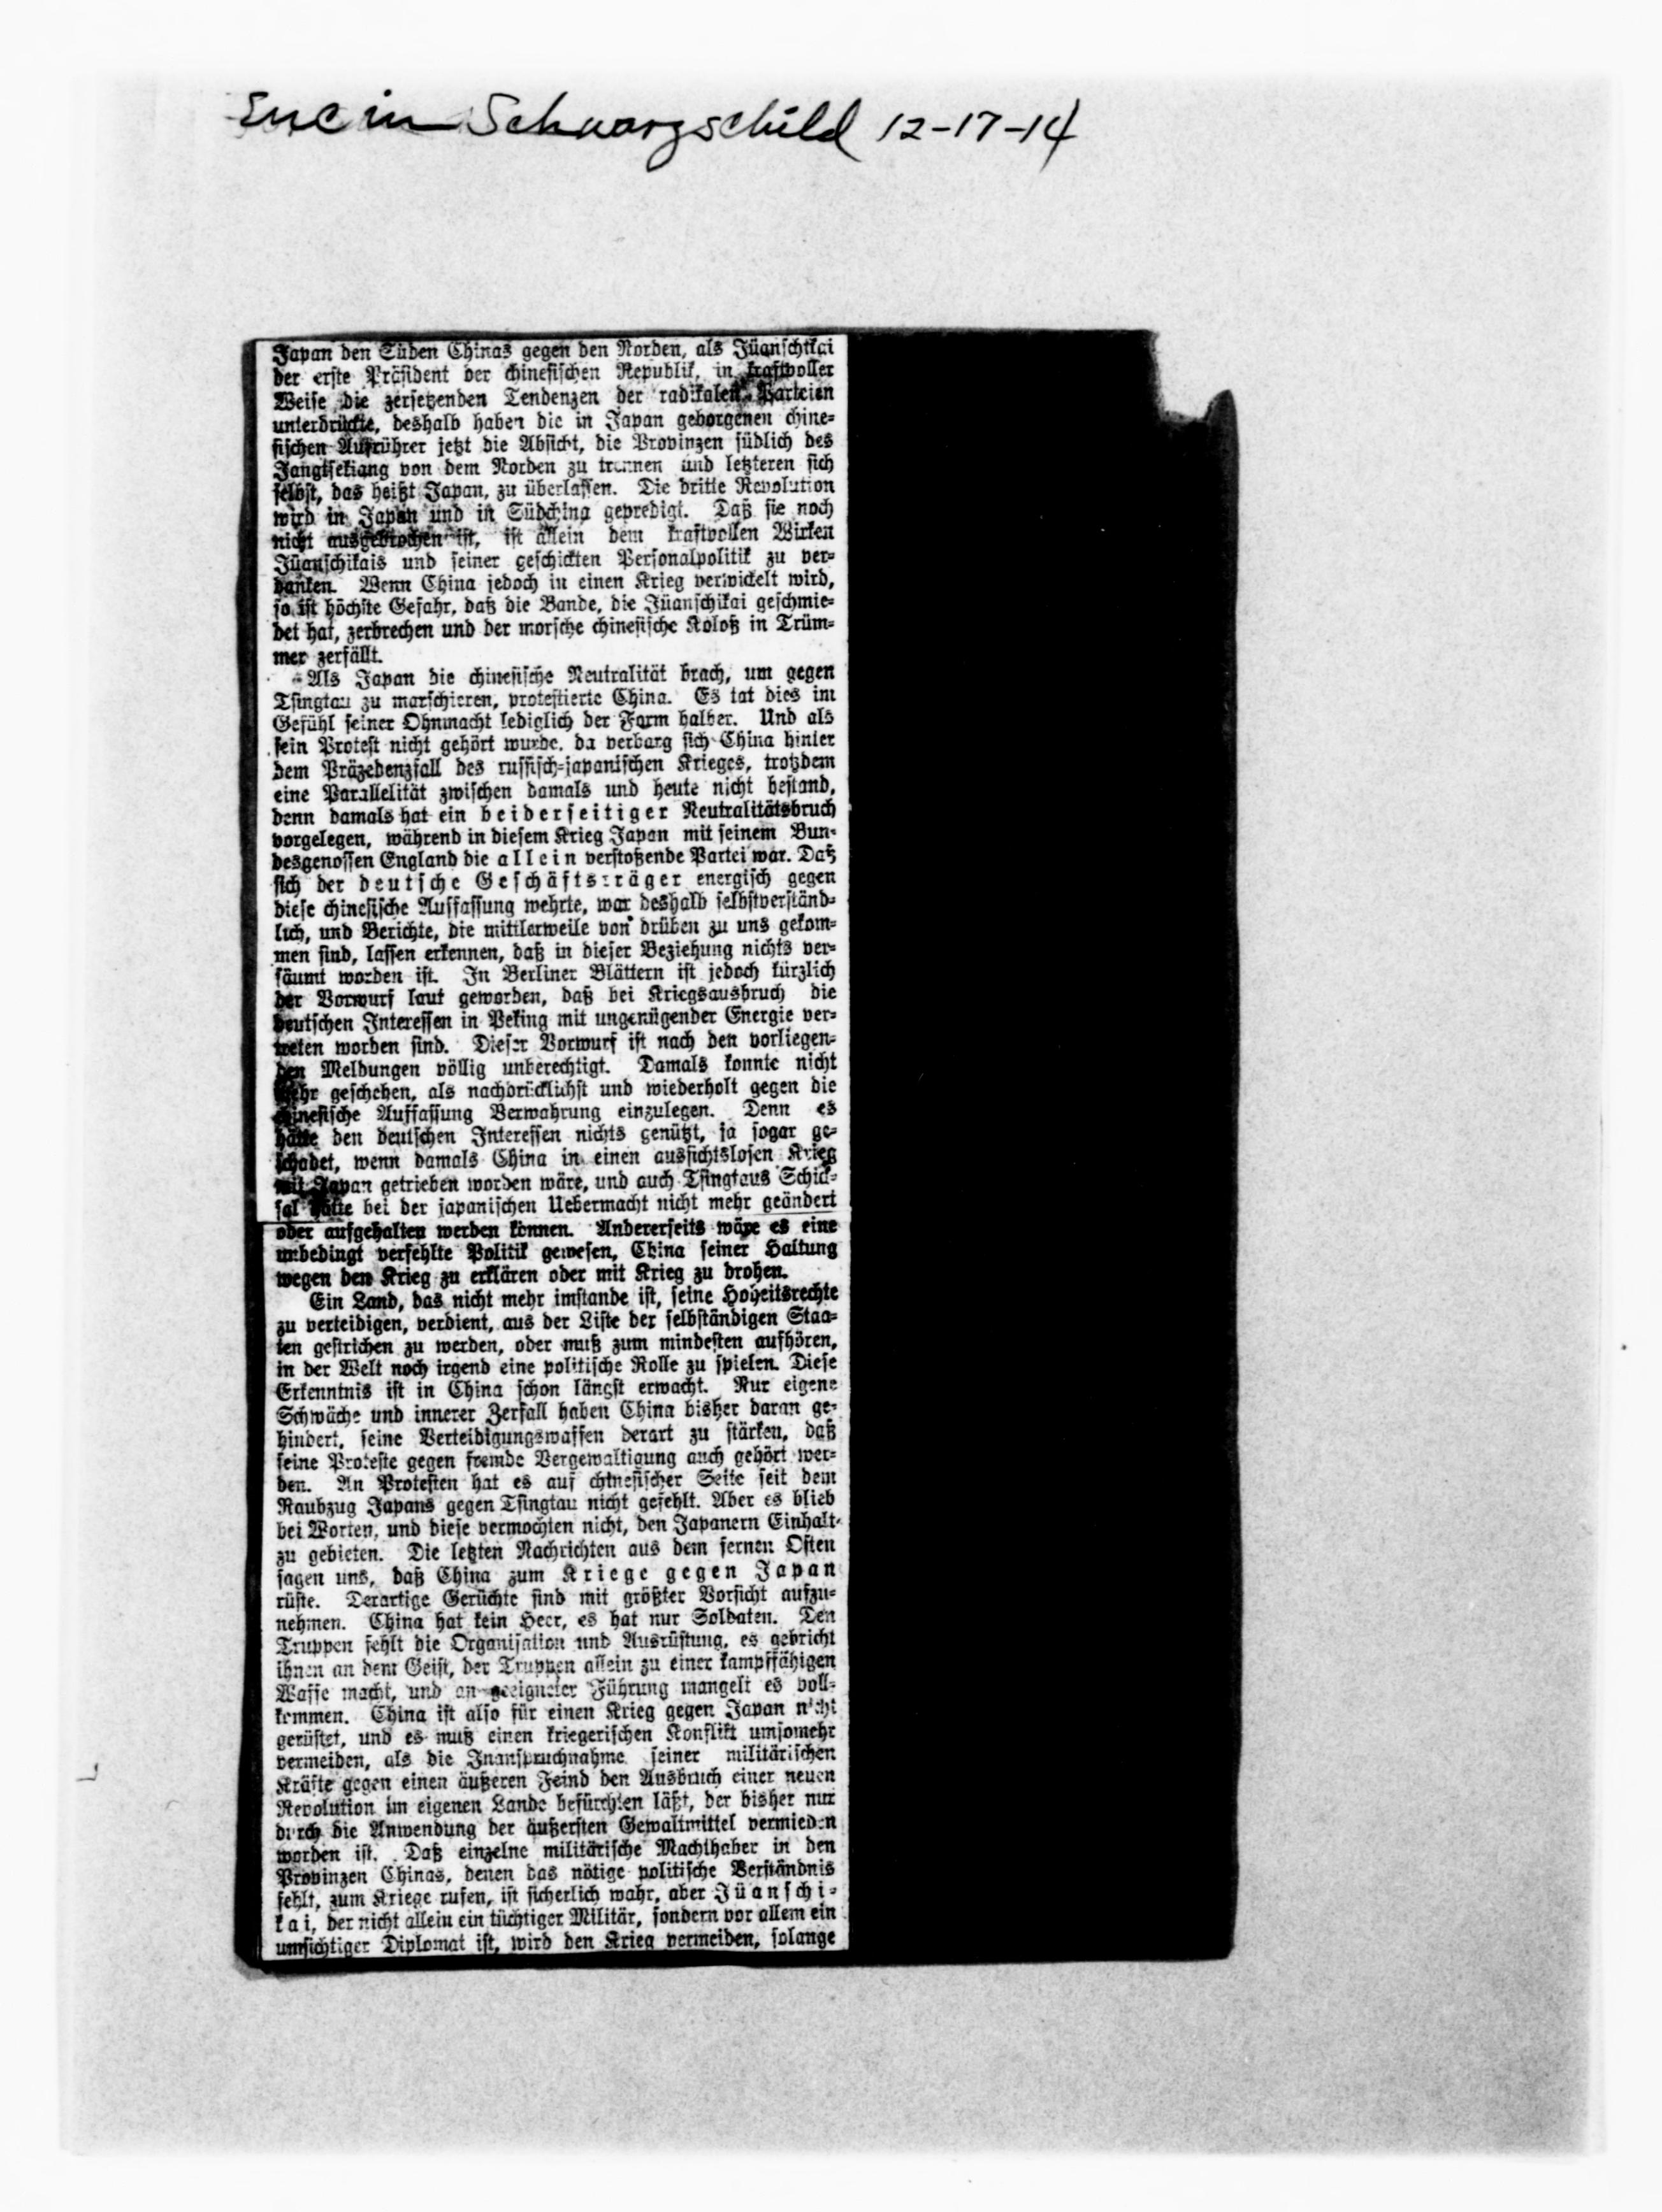 Enc in Schwarzschild 12-17-14
Japan den Süden Chinas gegen den Norden, als Jüanschikai
der erste Präsident der chinesischen Republik, in kraftvoller
Weise die zersetzenden Tendenzen der radikalen Parteien
unterdrückte, deshalb haben die in Japan geborgenen chine-
sischen Aufrührer jetzt die Absicht, die Provinzen südlich des
Jangtsekiang von dem Norden zu trennen und letzteren sich
selbst, das heißt Japan, zu überlassen. Die dritte Revolution
wird in Japan und in Südchina gepredigt. Daß sie noch
nicht ausgebrochen ist, ist allein dem kraftvollen Wirken
Jüanschikais und seiner geschickten Personalpolitik zu ver-
danken. Wenn China jedoch in einen Krieg verwickelt wird,
so ist höchste Gefahr, daß die Bande, die Jüanschikai geschmie-
det hat, zerbrechen und der morsche chinesische Koloß in Trüm-
mer zerfällt.
Als Japan die chinesische Neutralität brach, um gegen
Tsingtau zu marschieren, protestierte China. Es tat dies im
Gefühl seiner Ohnmacht lediglich der Form halber. Und als
sein Protest nicht gehört wurde, da verbarg sich China hinter
dem Präzedenzfall des russisch-japanischen Krieges, trotzdem
eine Parallelität zwischen damals und heute nicht bestand,
denn damals hat ein beiderseitiger Neutralitätsbruch
vorgelegen, während in diesem Krieg Japan mit seinem Bun-
desgenossen England die allein verstoßende Partei war. Daß
sich der deutsche Geschäftsträger energisch gegen
diese chinesische Auffassung wehrte, war deshalb selbstverständ-
lich, und Berichte, die mittlerweile von drüben zu uns gekom-
men sind, lassen erkennen, daß in dieser Beziehung nichts ver-
säumt worden ist. In Berliner Blättern ist jedoch kürzlich
der Vorwurf laut geworden, daß bei Kriegsausbruch die
deutschen Interessen in Peking mit ungenügender Energie ver-
treten worden sind. Dieser Vorwurf ist nach den vorliegen-
den Meldungen völlig unberechtigt. Damals konnte nicht
mehr geschehen, als nachdrücklichst und wiederholt gegen die
chinesische Auffassung Verwahrung einzulegen. Denn es
hätte den deutschen Interessen nichts genützt, ja sogar ge-
schadet, wenn damals China in einen aussichtslosen Krieg
mit Japan getrieben worden wäre, und auch Tsingtaus Schick-
sal hätte bei der japanischen Uebermacht nicht mehr geändert
oder aufgehalten werden können. Andererseits wäre es eine
unbedingt verfehlte Politik gewesen, China seiner Haltung
wegen den Krieg zu erklären oder mit Krieg zu drohen.
Ein Land, das nicht mehr imstande ist, seine Hoheitsrechte
zu verteidigen, verdient, aus der Liste der selbständigen Staa-
ten gestrichen zu werden, oder muß zum mindesten aufhören,
in der Welt noch irgend eine politische Rolle zu spielen. Diese
Erkenntnis ist in China schon längst erwacht. Nur eigene
Schwäche und innerer Zerfall haben China bisher daran ge-
hindert, seine Verteidigungswaffen derart zu stärken, daß
seine Proteste gegen fremde Vergewaltigung auch gehört wer-
den. An Protesten hat es auf chinesischer Seite seit dem
Raubzug Japans gegen Tsingtau nicht gefehlt. Aber es blieb
bei Worten, und diese vermochten nicht, den Japanern Einhalt
zu gebieten. Die letzten Nachrichten aus dem fernen Osten
sagen uns, daß China zum Kriege gegen Japan
rüste. Derartige Gerüchte sind mit größter Vorsicht aufzu-
nehmen. China hat kein Heer, es hat nur Soldaten. Den
Truppen fehlt die Organisation und Ausrüstung, es gebricht
ihnen an dem Geist, der Truppen allein zu einer kampffähigen
Waffe macht, und an geeigneter Führung mangelt es voll-
kommen. China ist also für einen Krieg gegen Japan nicht
gerüstet, und es muß einen kriegerischen Konflikt umsomehr
vermeiden, als die Inanspruchnahme seiner militärischen
Kräfte gegen einen äußeren Feind den Ausbruch einer neuen
Revolution im eigenen Lande befürchten läßt, der bisher nur
durch die Anwendung der äußersten Gewaltmittel vermieden
worden ist. Daß einzelne militärische Machthaber in den
Provinzen Chinas, denen das nötige politische Verständnis
fehlt, zum Kriege rufen, ist sicherlich wahr, aber Jüanschi-
kai, der nicht allein ein tüchtiger Militär, sondern vor allem ein
umsichtiger Diplomat ist, wird den Krieg vermeiden, solange